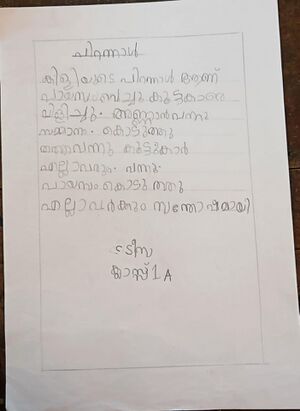 പിറന്നാൾ
കിളിയുടെ പിറന്നാൾ ആണ്
പായസംവെച്ചു കൂട്ടകാരെ
വിളിച്ചു. അണ്ണാൻവന്നു
സമ്മാനം. കൊടുത്തു
വന്നു കൂട്ടുകാർ
എല്ലാവരും. വന്നു.
പായസം കൊടുത്തു
എല്ലാവർക്കും സന്തോഷമായി
ക്ലാസ്സ് 1 A